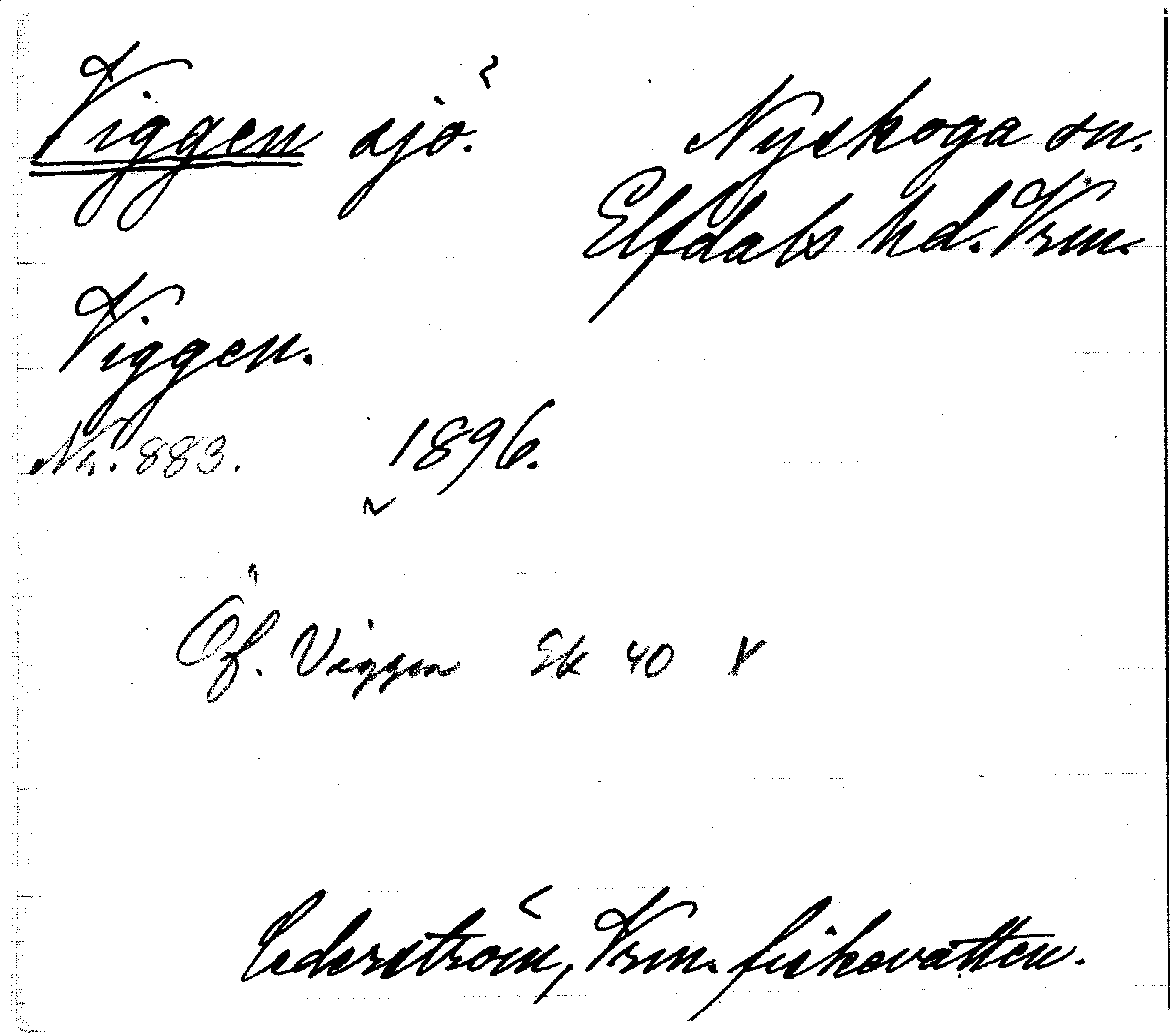 Viggen sjö.
Nyskoga sn.
Elfdals hd. Vrm.
Viggen.
Nr. 883. 1896.
Öf. Viggen Ek 40 V
Cederström, Vrm. fiskevatten.